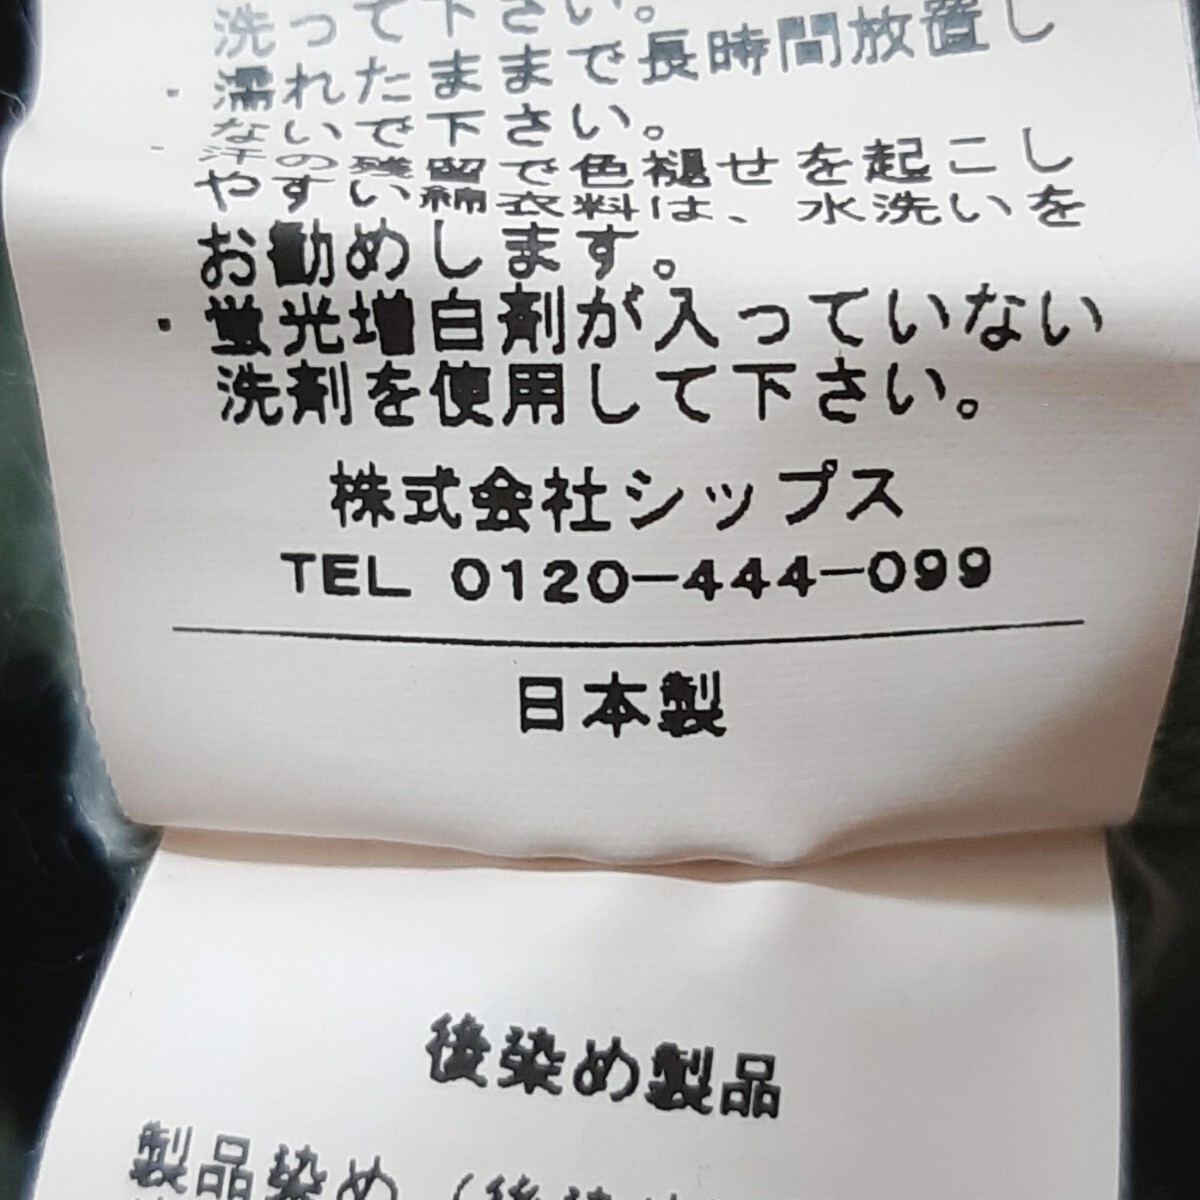 洗って下さい。
・濡れたままで長時間放置し
ないで下さい。
・汗の残留で色褪せを起こし
やすい綿衣料は、水洗いを
お勧めします。
・蛍光増白剤が入っていない
洗剤を使用して下さい。
株式会社シップス
TEL 0120-444-099
日本製
後染め製品
製品染め(後染め